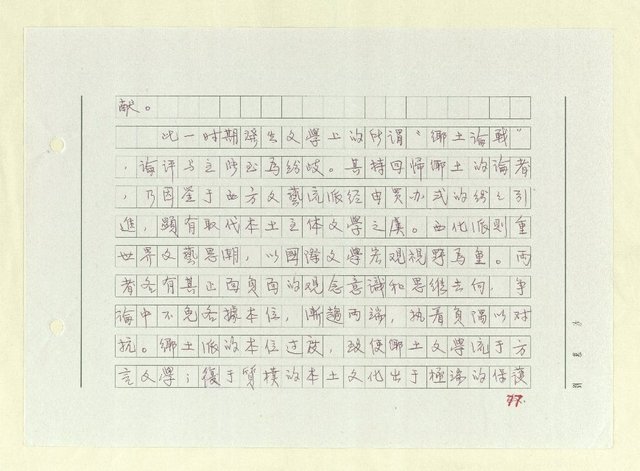 献。
此一时期發生文學上的所謂“鄉土論戰”
，論评与主所至為紛岐。其持回帰鄉土的論者
，乃因鉴于西方文藝流派经由買办式的纷纷引
進，顕有取代本土主体文學之虞。西化派則重
世界文藝思潮，以國際文學宏观視野為重。両
者各有其正面負面的观念意識和思維去向，争
論中不免各據本位，漸趨両端，执着負隅以对
抗。鄉土派的本位过度，致使鄉土文學流于方
言文學；復于質樸的本土文化出于極端的保護
77.